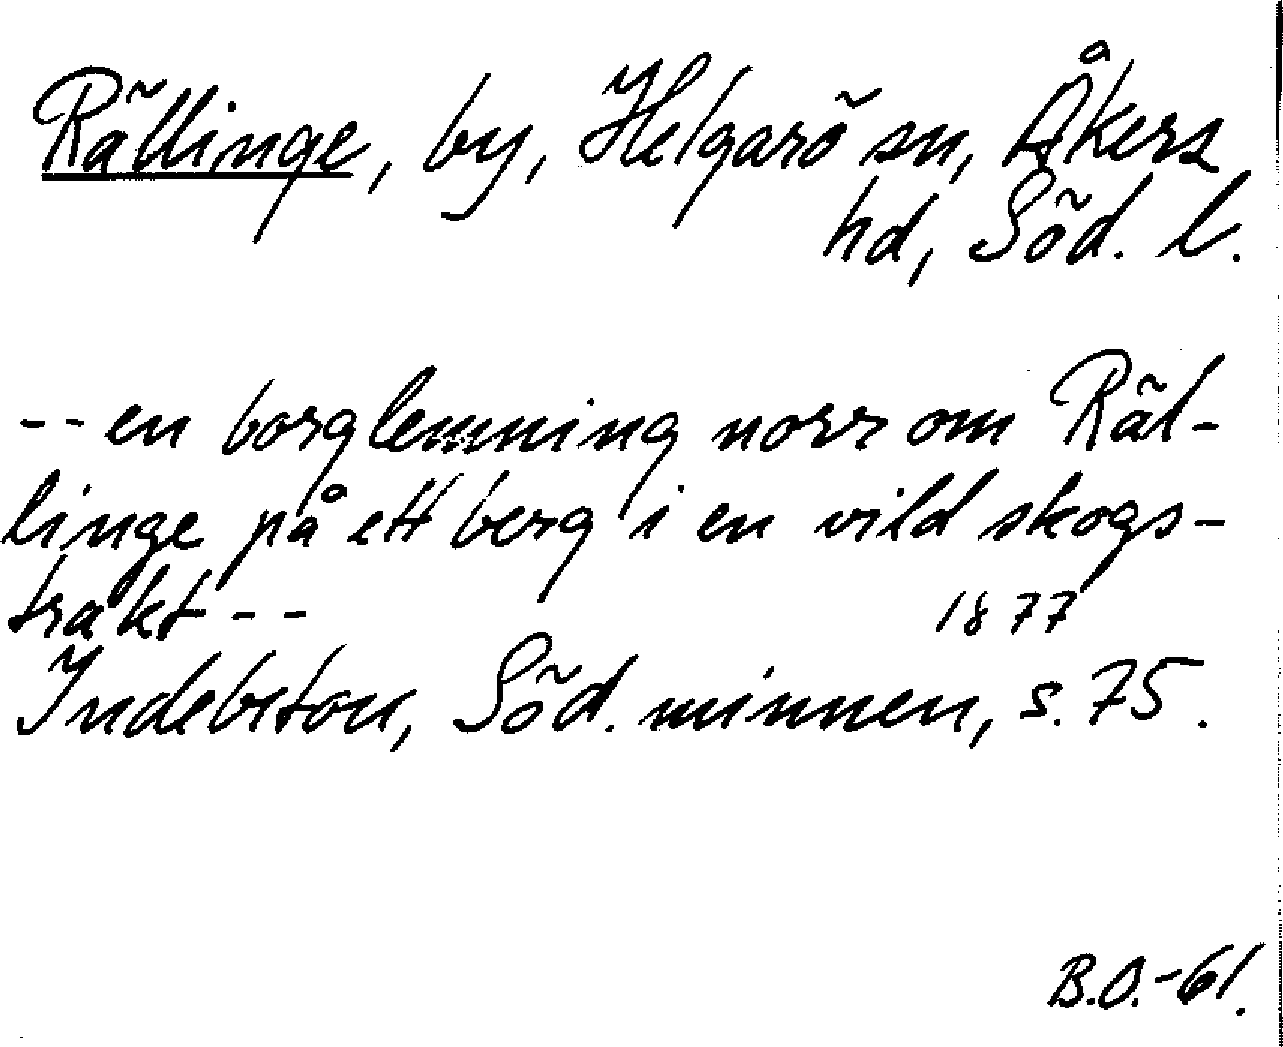 Rällinge, by, Helgarö sn, Åkers
hd, Söd. l.
-- en borglemning norr om Räl-
linge på ett berg i en vild skogs-
trakt -- 1877
Indebetou, Söd. minnen, s. 75.
B.O.-61.